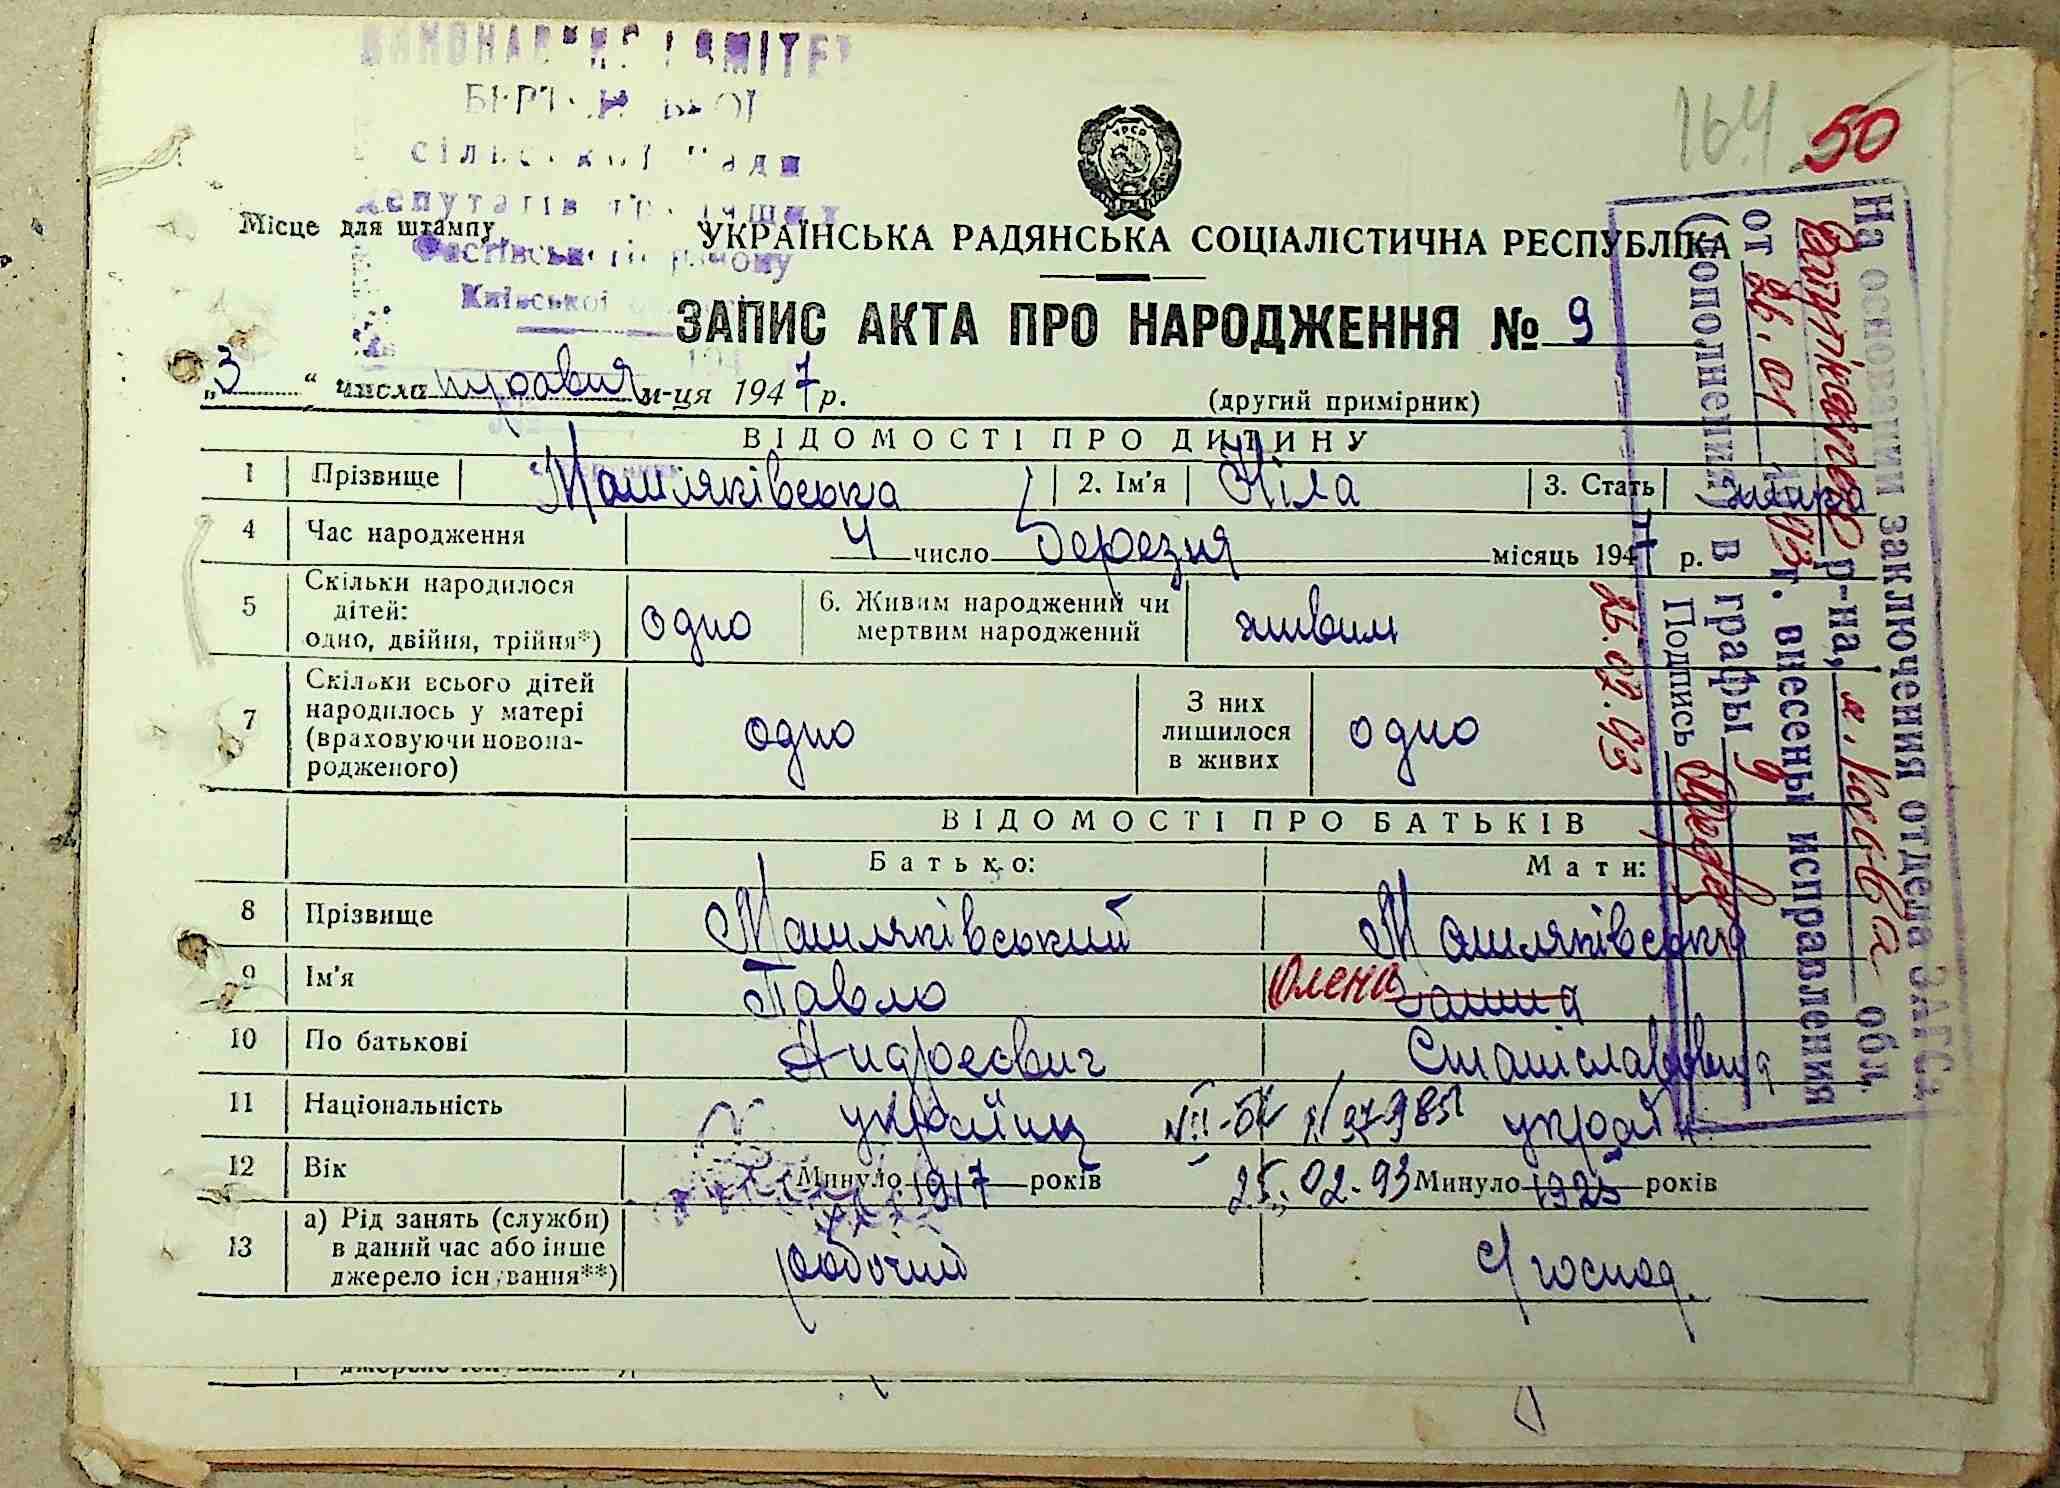 сільської ради
депутатів трудящих
Фастівського району
Київської
Місце для штампу
164
50
УРСР
УКРАЇНСЬКА РАДЯНСЬКА СОЦІАЛІСТИЧНА РЕСПУБЛІКА
ЗАПИС АКТА ПРО НАРОДЖЕННЯ № 9
„3“ числа травня м-ця 1947 р. (другий примірник)
ВІДОМОСТІ ПРО ДИТИНУ
1 Прізвище Машляківська 2. Ім'я Ніла 3. Стать
4 Час народження 4 число Березня місяць 1947 р.
5 Скільки народилося дітей: одно, двійня, трійня*) одно 6. Живим народжений чи мертвим народжений живим
7 Скільки всього дітей народилось у матері (враховуючи новонародженого) одно З них лишилося в живих одно
ВІДОМОСТІ ПРО БАТЬКІВ
Батько: Мати:
8 Прізвище Машляківський Машляківська
9 Ім'я Павло Олена
10 По батькові Андреєвич Станіславовна
11 Національність українц україн
12 Вік Минуло 1917 років 25.02.93 Минуло 1925 років
13 а) Рід занять (служби) в даний час або інше джерело існування**) рабочий с/господ.
На основании заключения отдела ЗАГСа
р-на, г. Киева обл.
от 26.01 1993 г. внесены исправления
(дополнения) в графы 9
Подпись
26.02.93